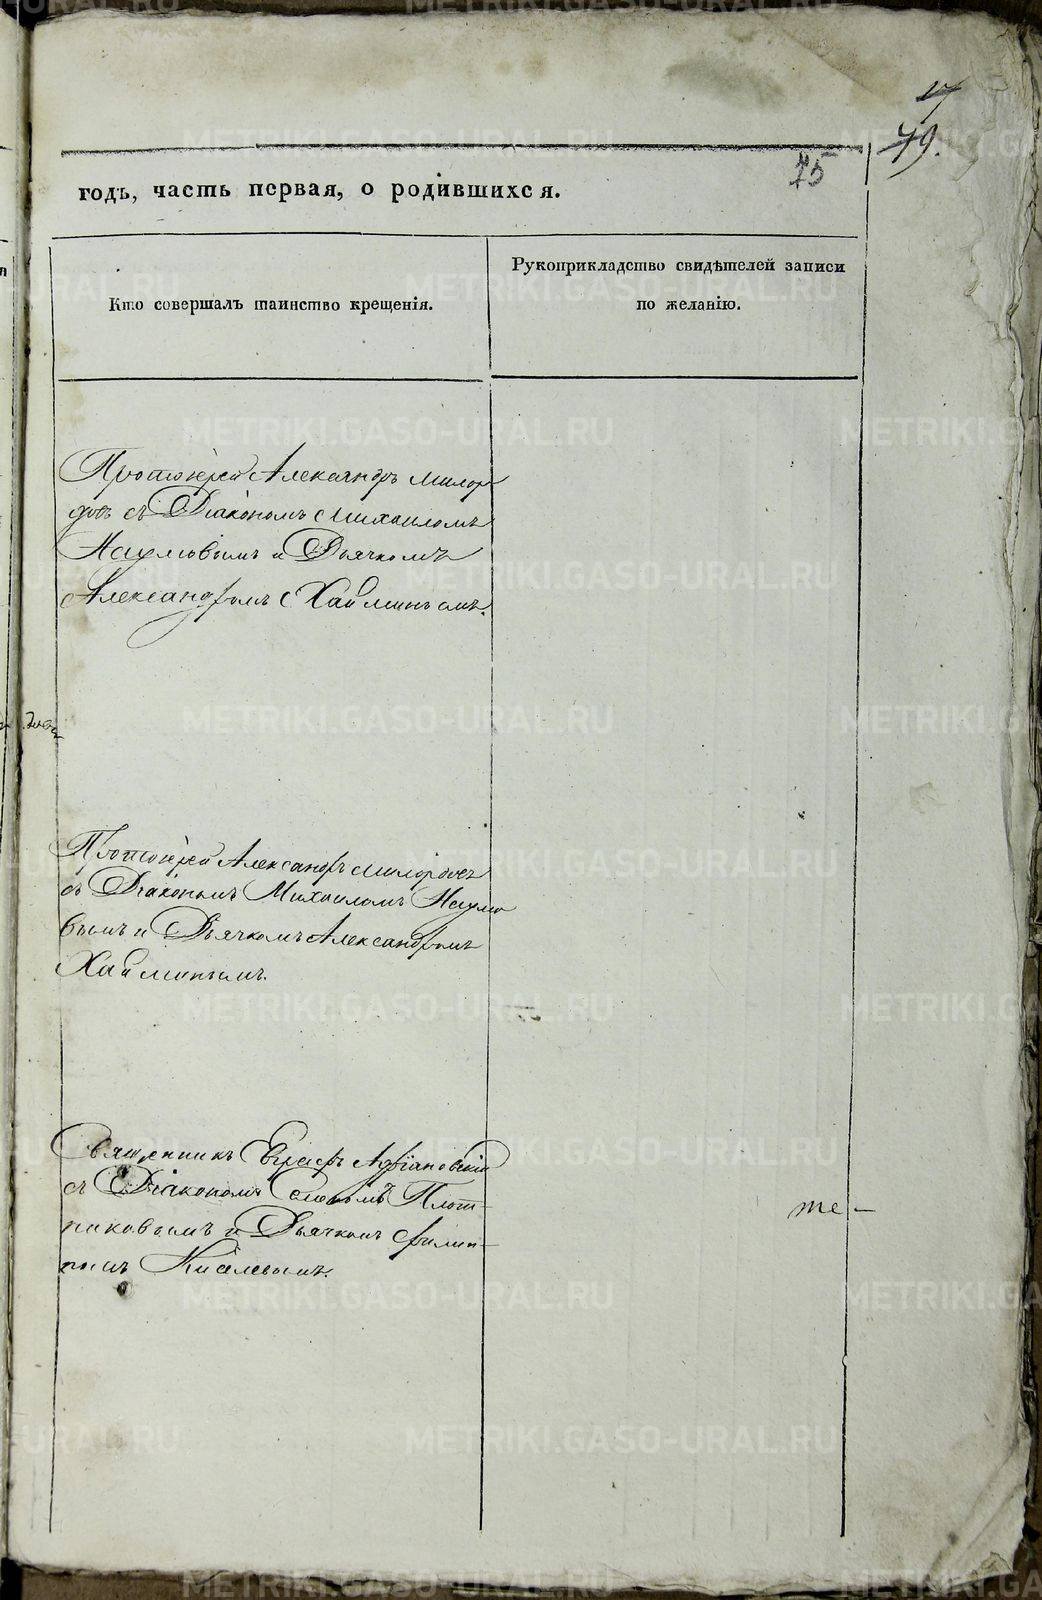 17
79.
75
годъ, часть первая, о родившихся.
Кто совершалъ таинство крещенія.
Рукоприкладство свидѣтелей записи
по желанію.
Протоіерей Александръ Милор
довъ съ Діакономъ Михаиломъ
Наумовымъ и Дьячкомъ
Александромъ Хайминымъ.
Протоіерей Александръ Милордовъ
съ Діакономъ Михаиломъ Наумо
вымъ и Дьячкомъ Александромъ
Хайминымъ.
Священникъ Евграфъ
съ Діакономъ Плот-
никовымъ и Дьячкомъ Филип-
помъ Киселевымъ.
те-
METRIKI.GASO-URAL.RU